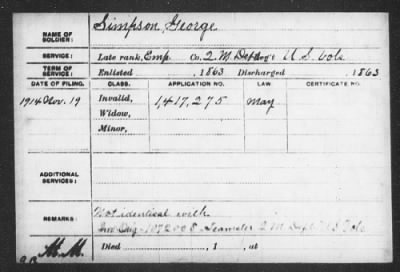 NAME OF SOLDIER: Simpson, George
SERVICE: Late rank, Emp. Co. Q. M. Dept Reg't U S. Vols.
TERM OF SERVICE: Enlisted , 1863 Discharged , 1863
DATE OF FILING. CLASS. APPLICATION NO. LAW CERTIFICATE NO.
1914 Nov. 19 Invalid, 1,417,275 May
Widow,
Minor,
ADDITIONAL SERVICES:
REMARKS: Not identical with
Teamster Q M Dept U S Vols
M. M. Died , 1 , at